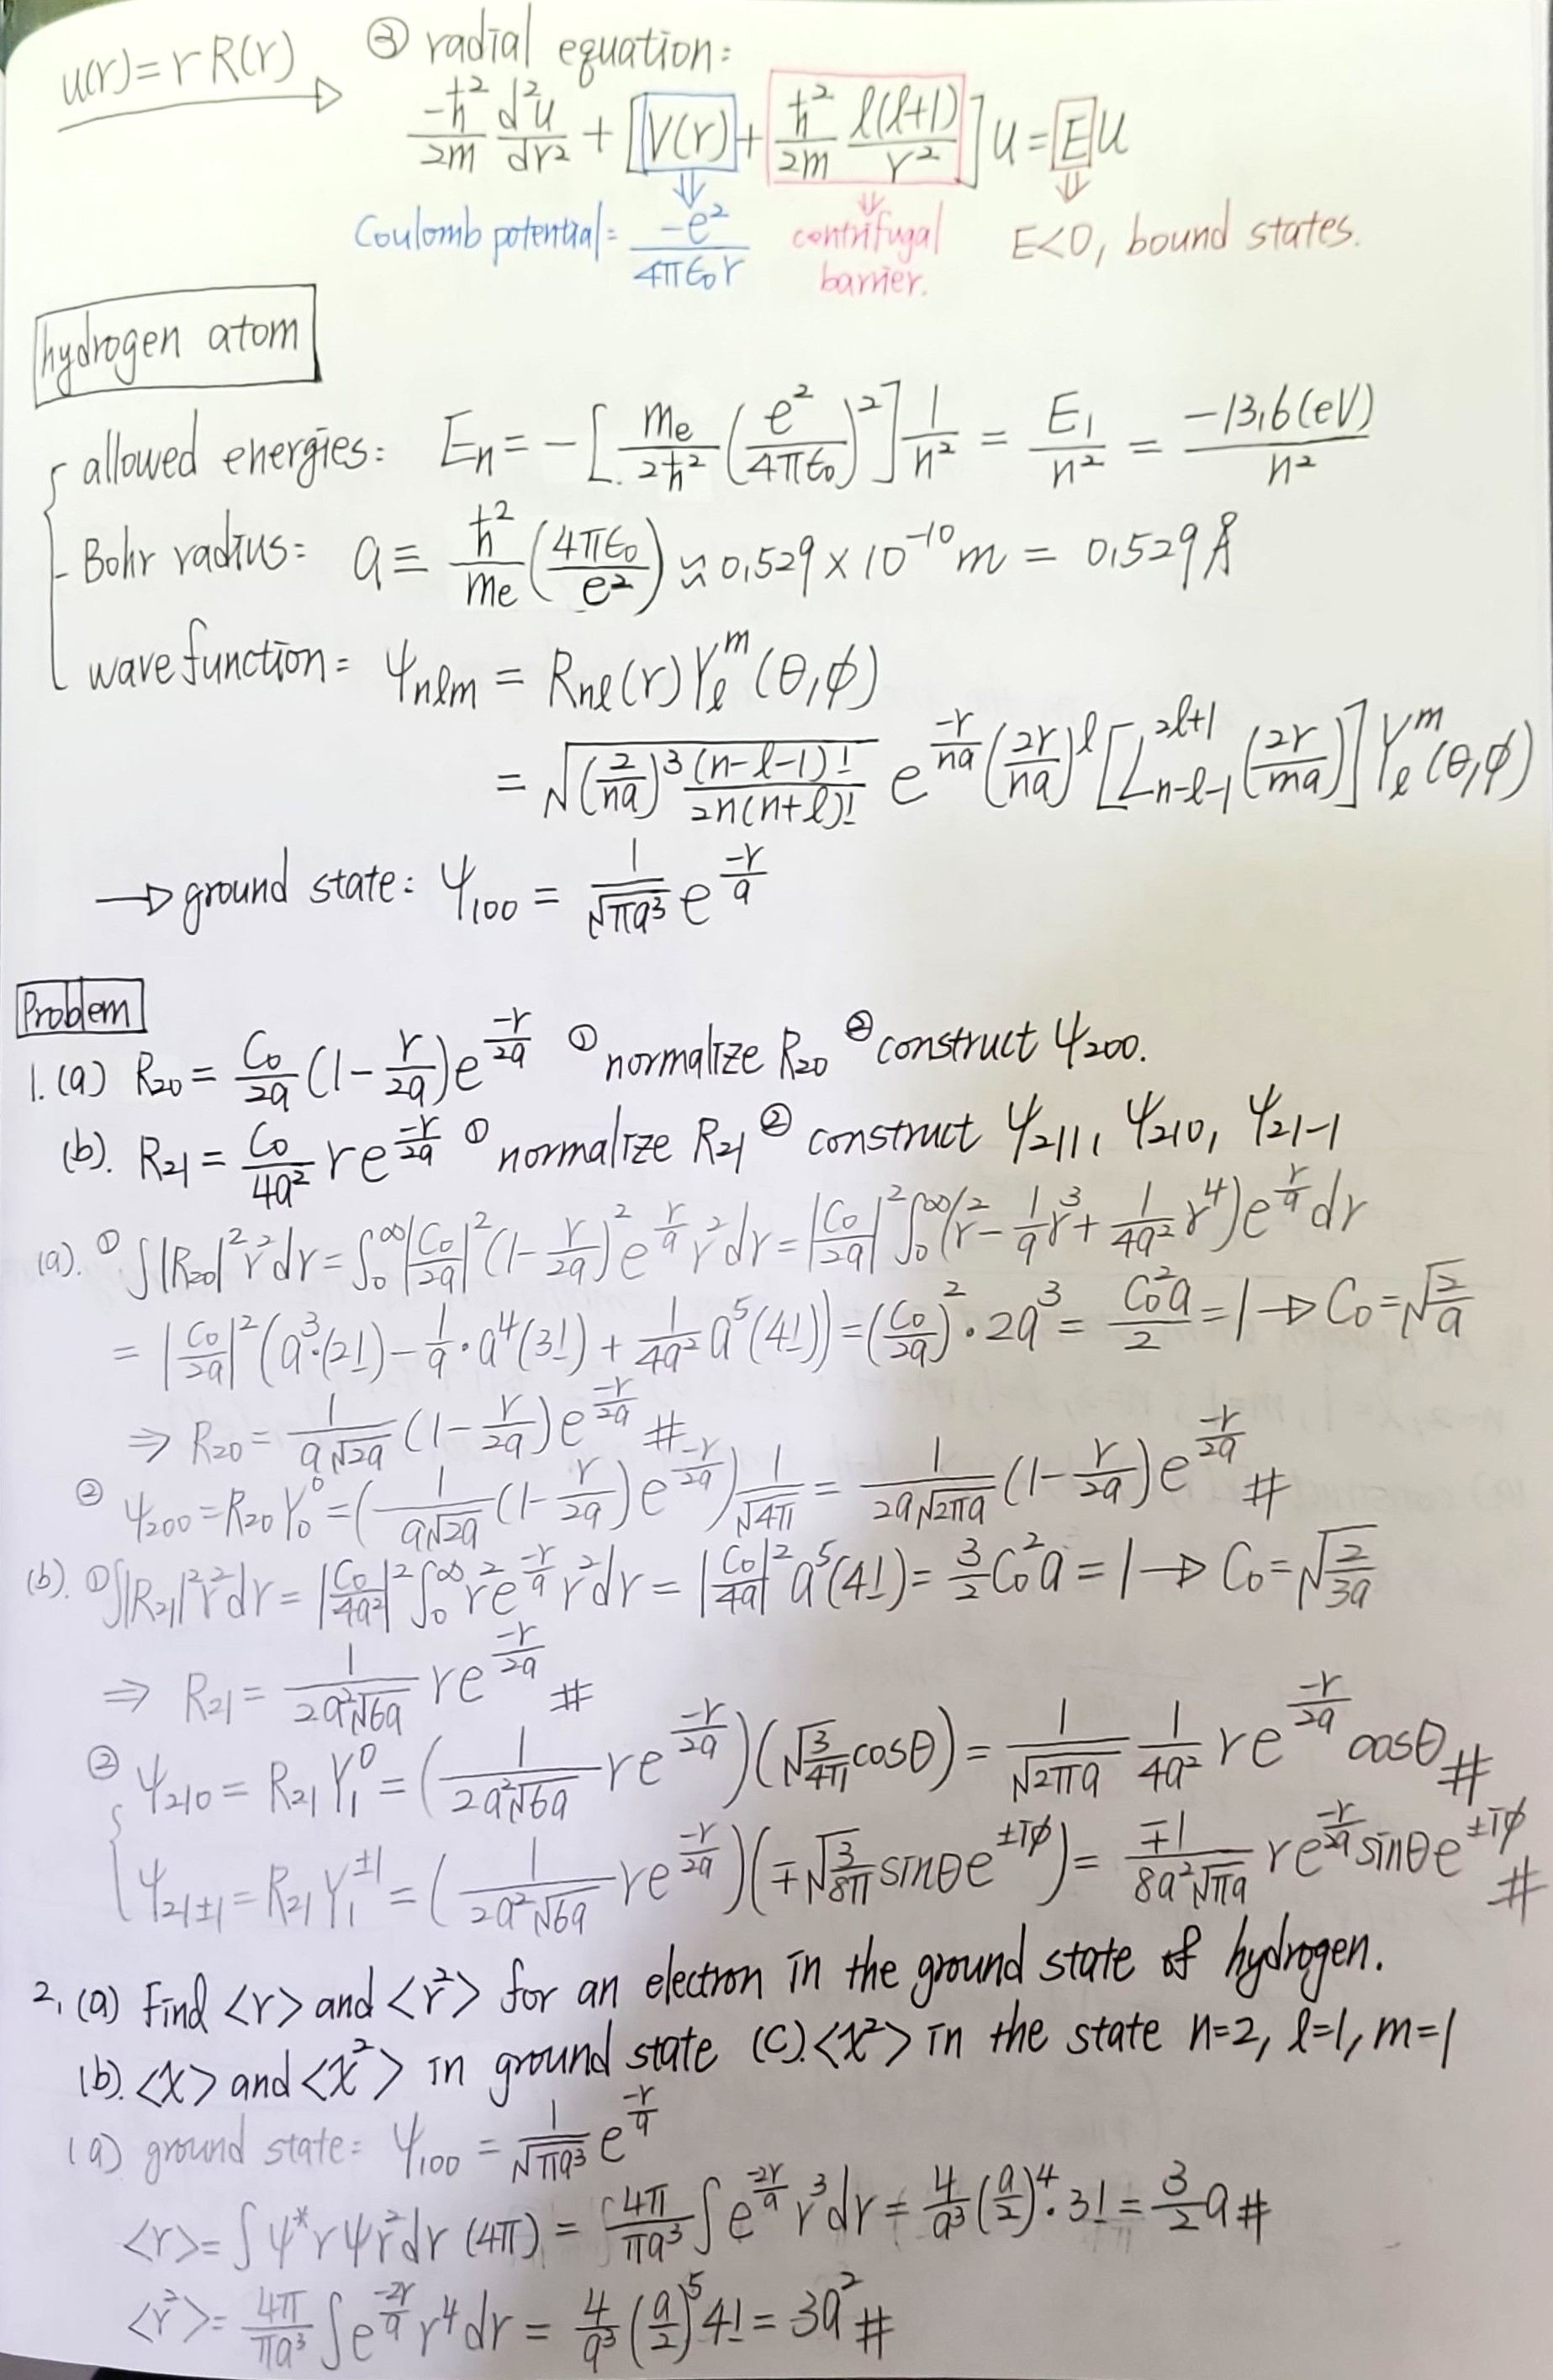 u(r)=rR(r) → ③ radial equation:
-ħ²/2m d²u/dr² + [V(r) + ħ²/2m l(l+1)/r²]u = Eu
Coulomb potential = -e²/4πε₀r centrifugal barrier. E<0, bound states.
hydrogen atom
allowed energies: Eₙ = -[mₑ/2ħ² (e²/4πε₀)²] 1/n² = E₁/n² = -13.6(eV)/n²
Bohr radius: a ≡ ħ²/mₑ (4πε₀/e²) ≈ 0.529 × 10⁻¹⁰ m = 0.529 Å
wave function = ψₙₗₘ = Rₙₗ(r)Yₗᵐ(θ,φ)
= √((2/na)³ (n-l-1)!/2n(n+l)!) e^(-r/na) (2r/na)^l [L_{n-l-1}^{2l+1}(2r/ma)] Yₗᵐ(θ,φ)
→ ground state: ψ₁₀₀ = 1/√(πa³) e^(-r/a)
Problem
1. (a) R₂₀ = C₀/2a (1 - r/2a)e^(-r/2a) ① normalize R₂₀ ② construct ψ₂₀₀.
(b). R₂₁ = C₀/4a² r e^(-r/2a) ① normalize R₂₁ ② construct ψ₂₁₁, ψ₂₁₀, ψ₂₁₋₁
(a). ① ∫|R₂₀|²r²dr = ∫₀^∞ |C₀/2a|² (1 - r/2a)² e^(r/a) r²dr = |C₀/2a|² ∫₀^∞ (r² - 1/a r³ + 1/4a² r⁴)e^(r/a) dr
= |C₀/2a|² (a³·(2!) - 1/a · a⁴(3!) + 1/4a² a⁵(4!)) = (C₀/2a)² · 2a³ = C₀²a/2 = 1 → C₀ = √(2/a)
⇒ R₂₀ = 1/(a√2a) (1 - r/2a)e^(-r/2a) #
② ψ₂₀₀ = R₂₀Y₀⁰ = (1/(a√2a) (1 - r/2a)e^(-r/2a)) 1/√4π = 1/(2a√2πa) (1 - r/2a)e^(-r/2a) #
(b). ① ∫|R₂₁|²r²dr = |C₀/4a²|² ∫₀^∞ r²e^(-r/a) r²dr = |C₀/4a|² a⁵(4!) = 3/2 C₀²a = 1 → C₀ = √(2/3a)
⇒ R₂₁ = 1/(2a²√6a) r e^(-r/2a) #
② ψ₂₁₀ = R₂₁Y₁⁰ = (1/(2a²√6a) r e^(-r/2a))(√(3/4π) cosθ) = 1/√2πa 1/4a² r e^(-r/2a) cosθ #
ψ₂₁±₁ = R₂₁Y₁^±1 = (1/(2a²√6a) r e^(-r/2a))(∓√(3/8π) sinθ e^(±iφ)) = ∓1/(8a²√πa) r e^(-r/2a) sinθ e^(±iφ) #
2. (a) Find <r> and <r²> for an electron in the ground state of hydrogen.
(b). <x> and <x²> in ground state (c). <x²> in the state n=2, l=1, m=1
(a) ground state: ψ₁₀₀ = 1/√(πa³) e^(-r/a)
<r> = ∫ψ*rψr²dr (4π) = 4π/πa³ ∫e^(-2r/a) r³dr = 4/a³ (a/2)⁴ · 3! = 3/2 a #
<r²> = 4π/πa³ ∫e^(-2r/a) r⁴dr = 4/a³ (a/2)⁵ 4! = 3a² #